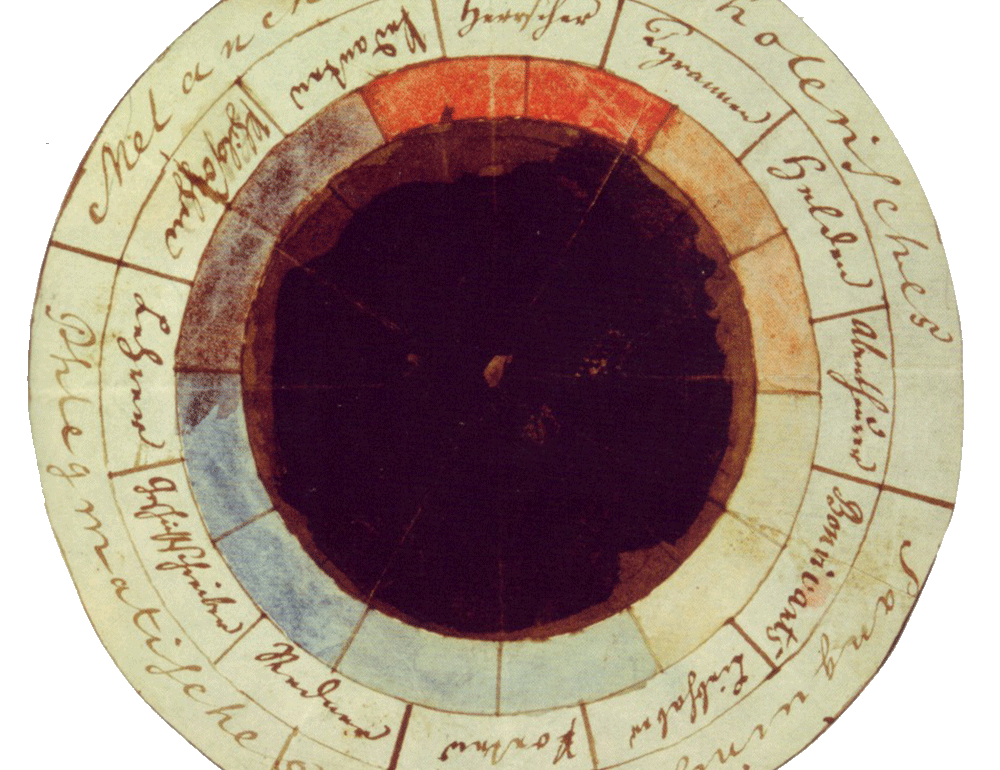 Melanc
holerisches
Sanguinis
Phlegmatische
Herrscher
Tyrannen
Helden
Abentheurer
Bonvivants
Liebhaber
Poeten
Redner
Geschichtschreiber
Lehrer
Philosophen
Pedanten